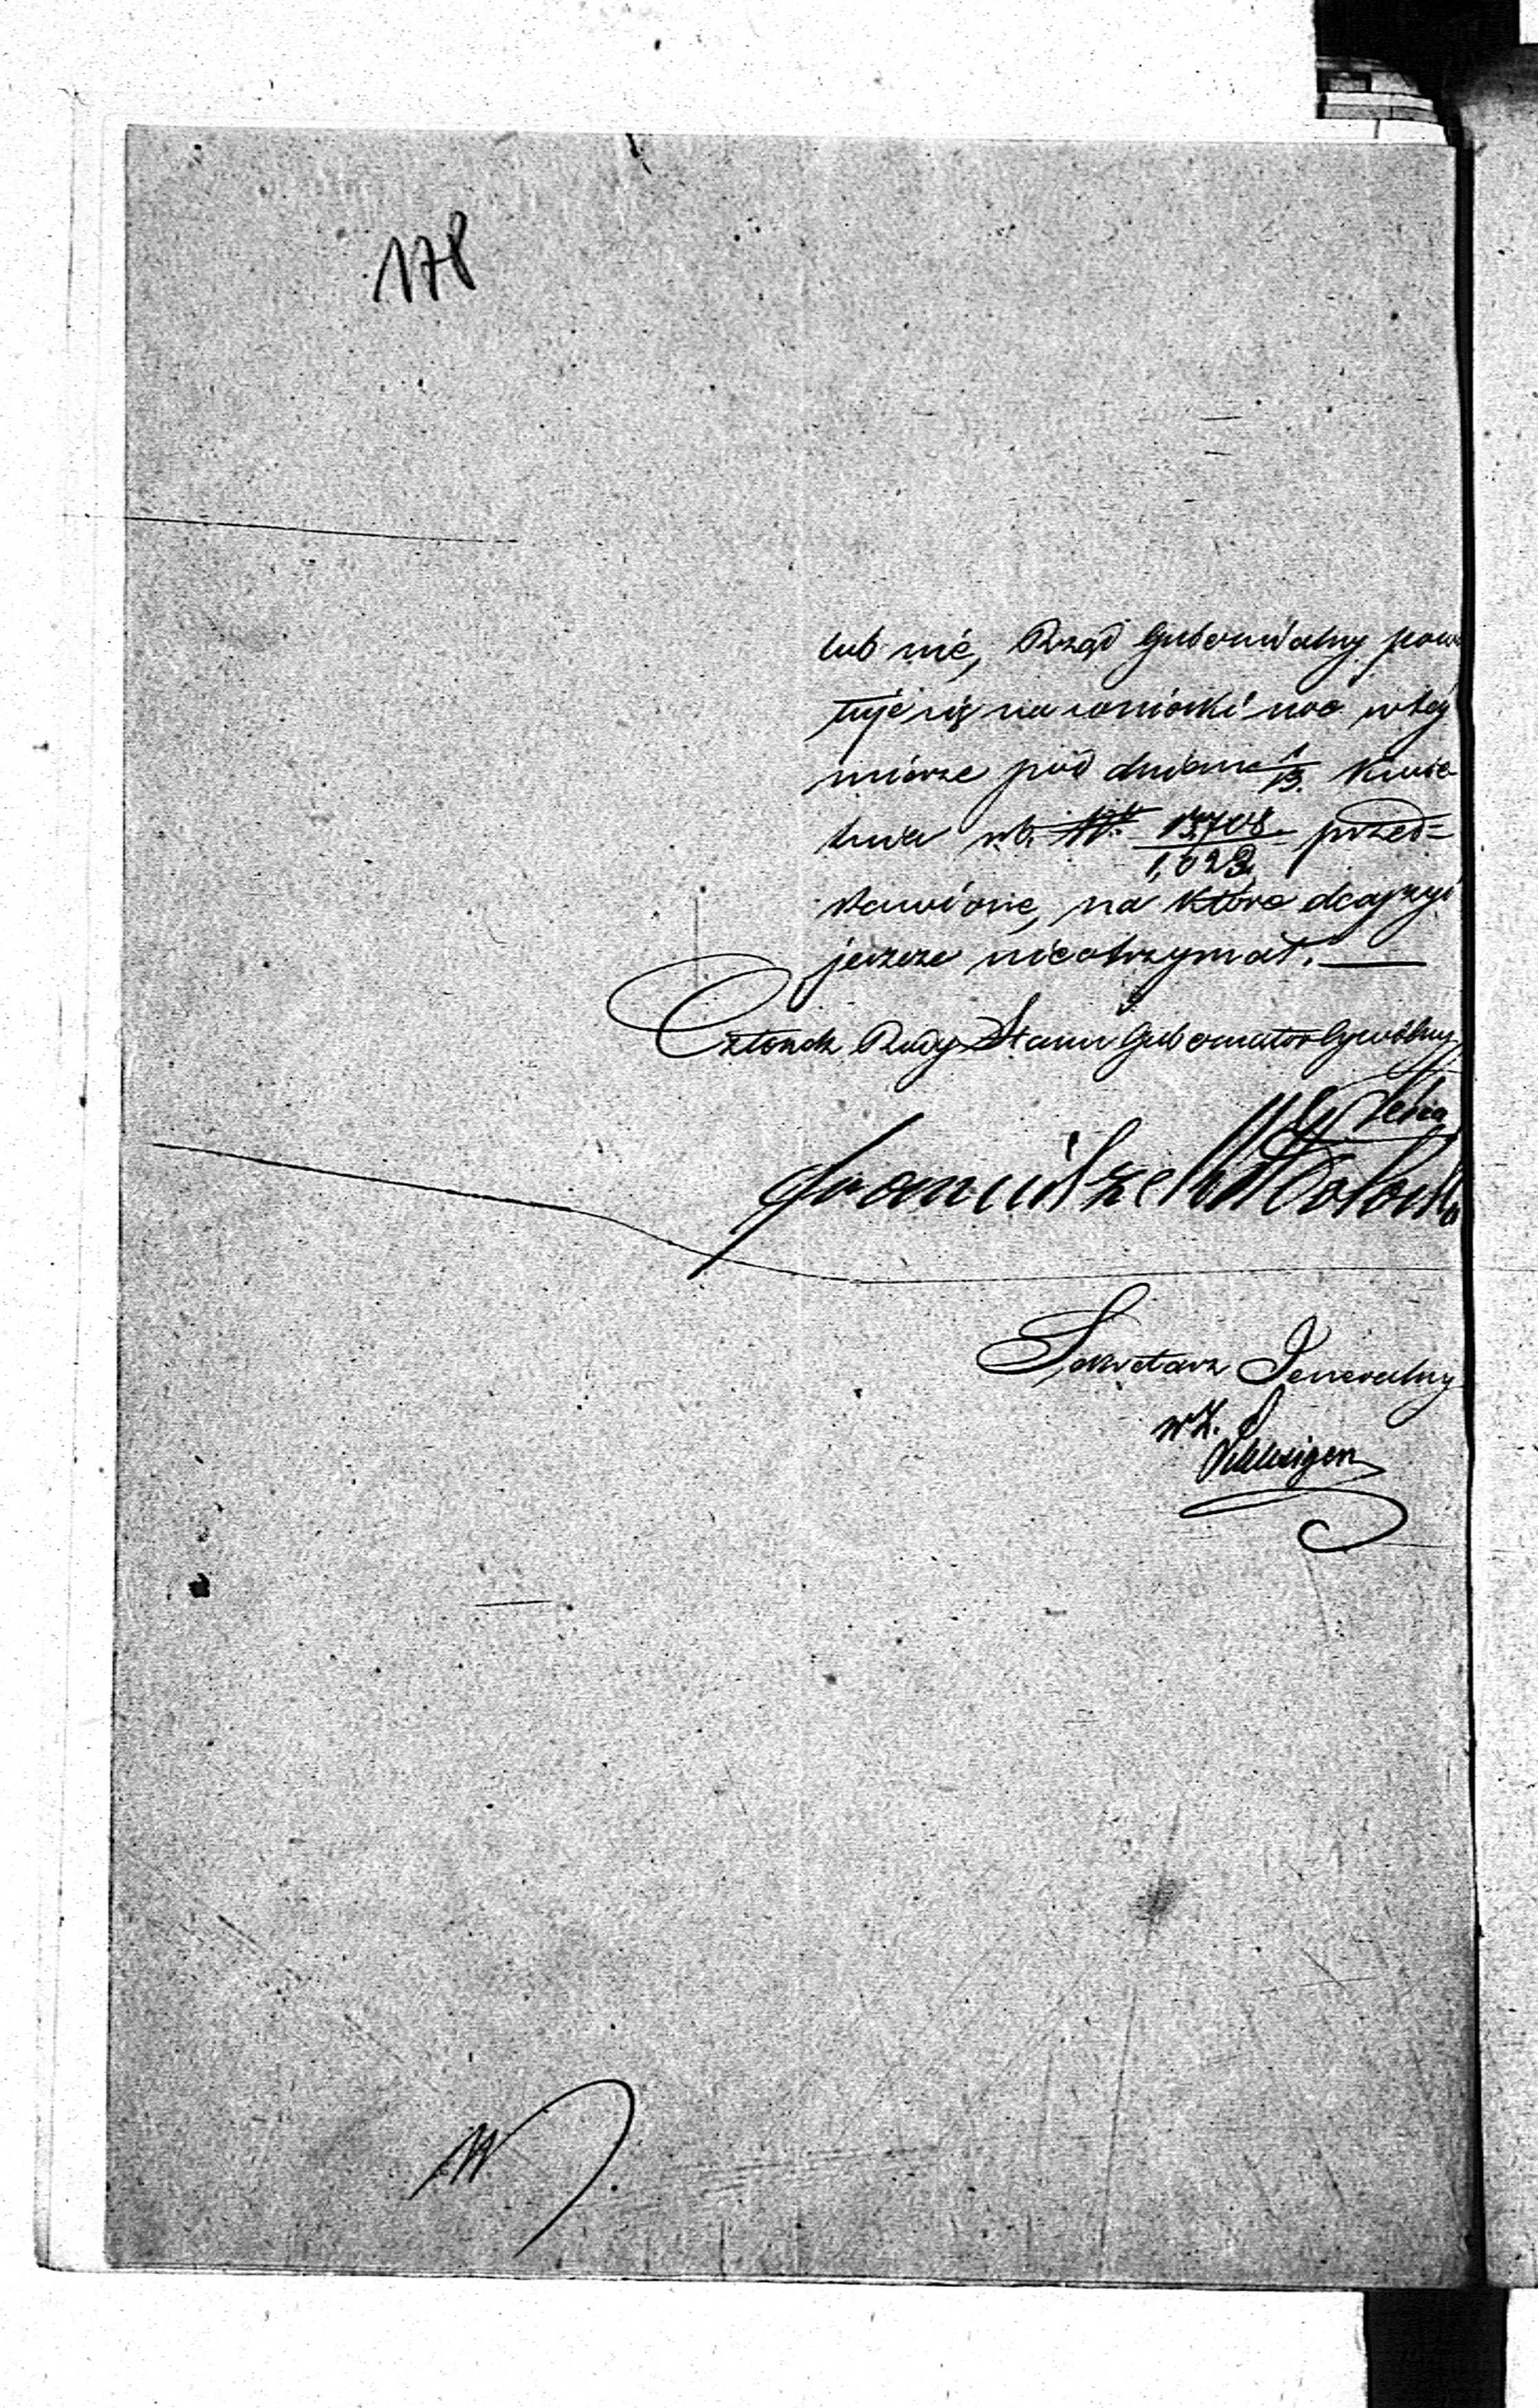 178
lub nié, Rząd Gubernialny powo
łuje się na wnioski swe w téj
mierze pod dniem 1/13. Kwie-
tnia rb. Nr 13,708/1,023 przed=
stawione, na które decyzyi
jeszcze nieotrzymał. —
Członek Rady Stanu Gubernator Cywilny
Franciszek
Sekretarz Jeneralny
wz.